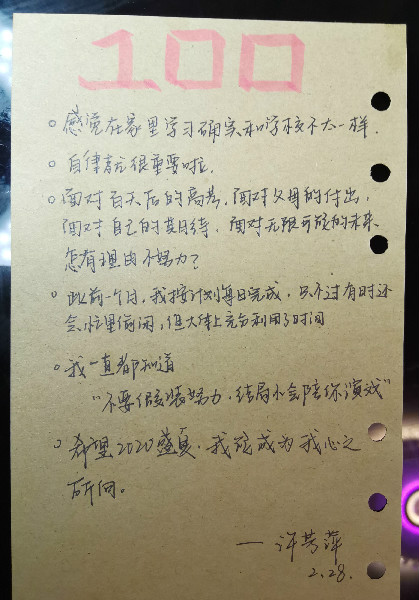 100
感觉在家里学习确实和学校不太一样.
自律真的很重要啦.
面对百天后的高考,面对父母的付出,
面对自己的期待,面对无限可能的未来.
怎有理由不努力?
此前一个月,我按计划每日完成,只不过有时还
会忙里偷闲,但大体上充分利用了时间
我一直都知道
"不要假装努力,结局不会陪你演戏"
希望2020盛夏.我能成为我心之
所向。
— 许芳萍
2.28.